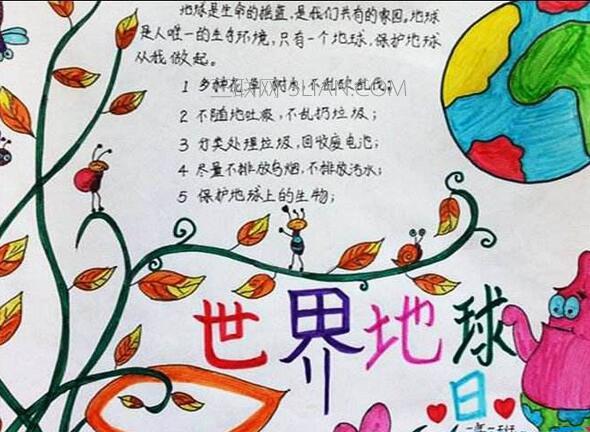 地球是生命的摇篮,是我们共有的家园,地球
是人唯一的生存环境,只有一个地球,保护地球
从我做起。
1 多种花草、树木,不乱砍乱伐;
2 不随地吐痰,不乱扔垃圾;
3 分类处理垃圾,回收废电池;
4 尽量不排放乌烟,不排放污水;
5 保护地球上的生物;
世界地球
日